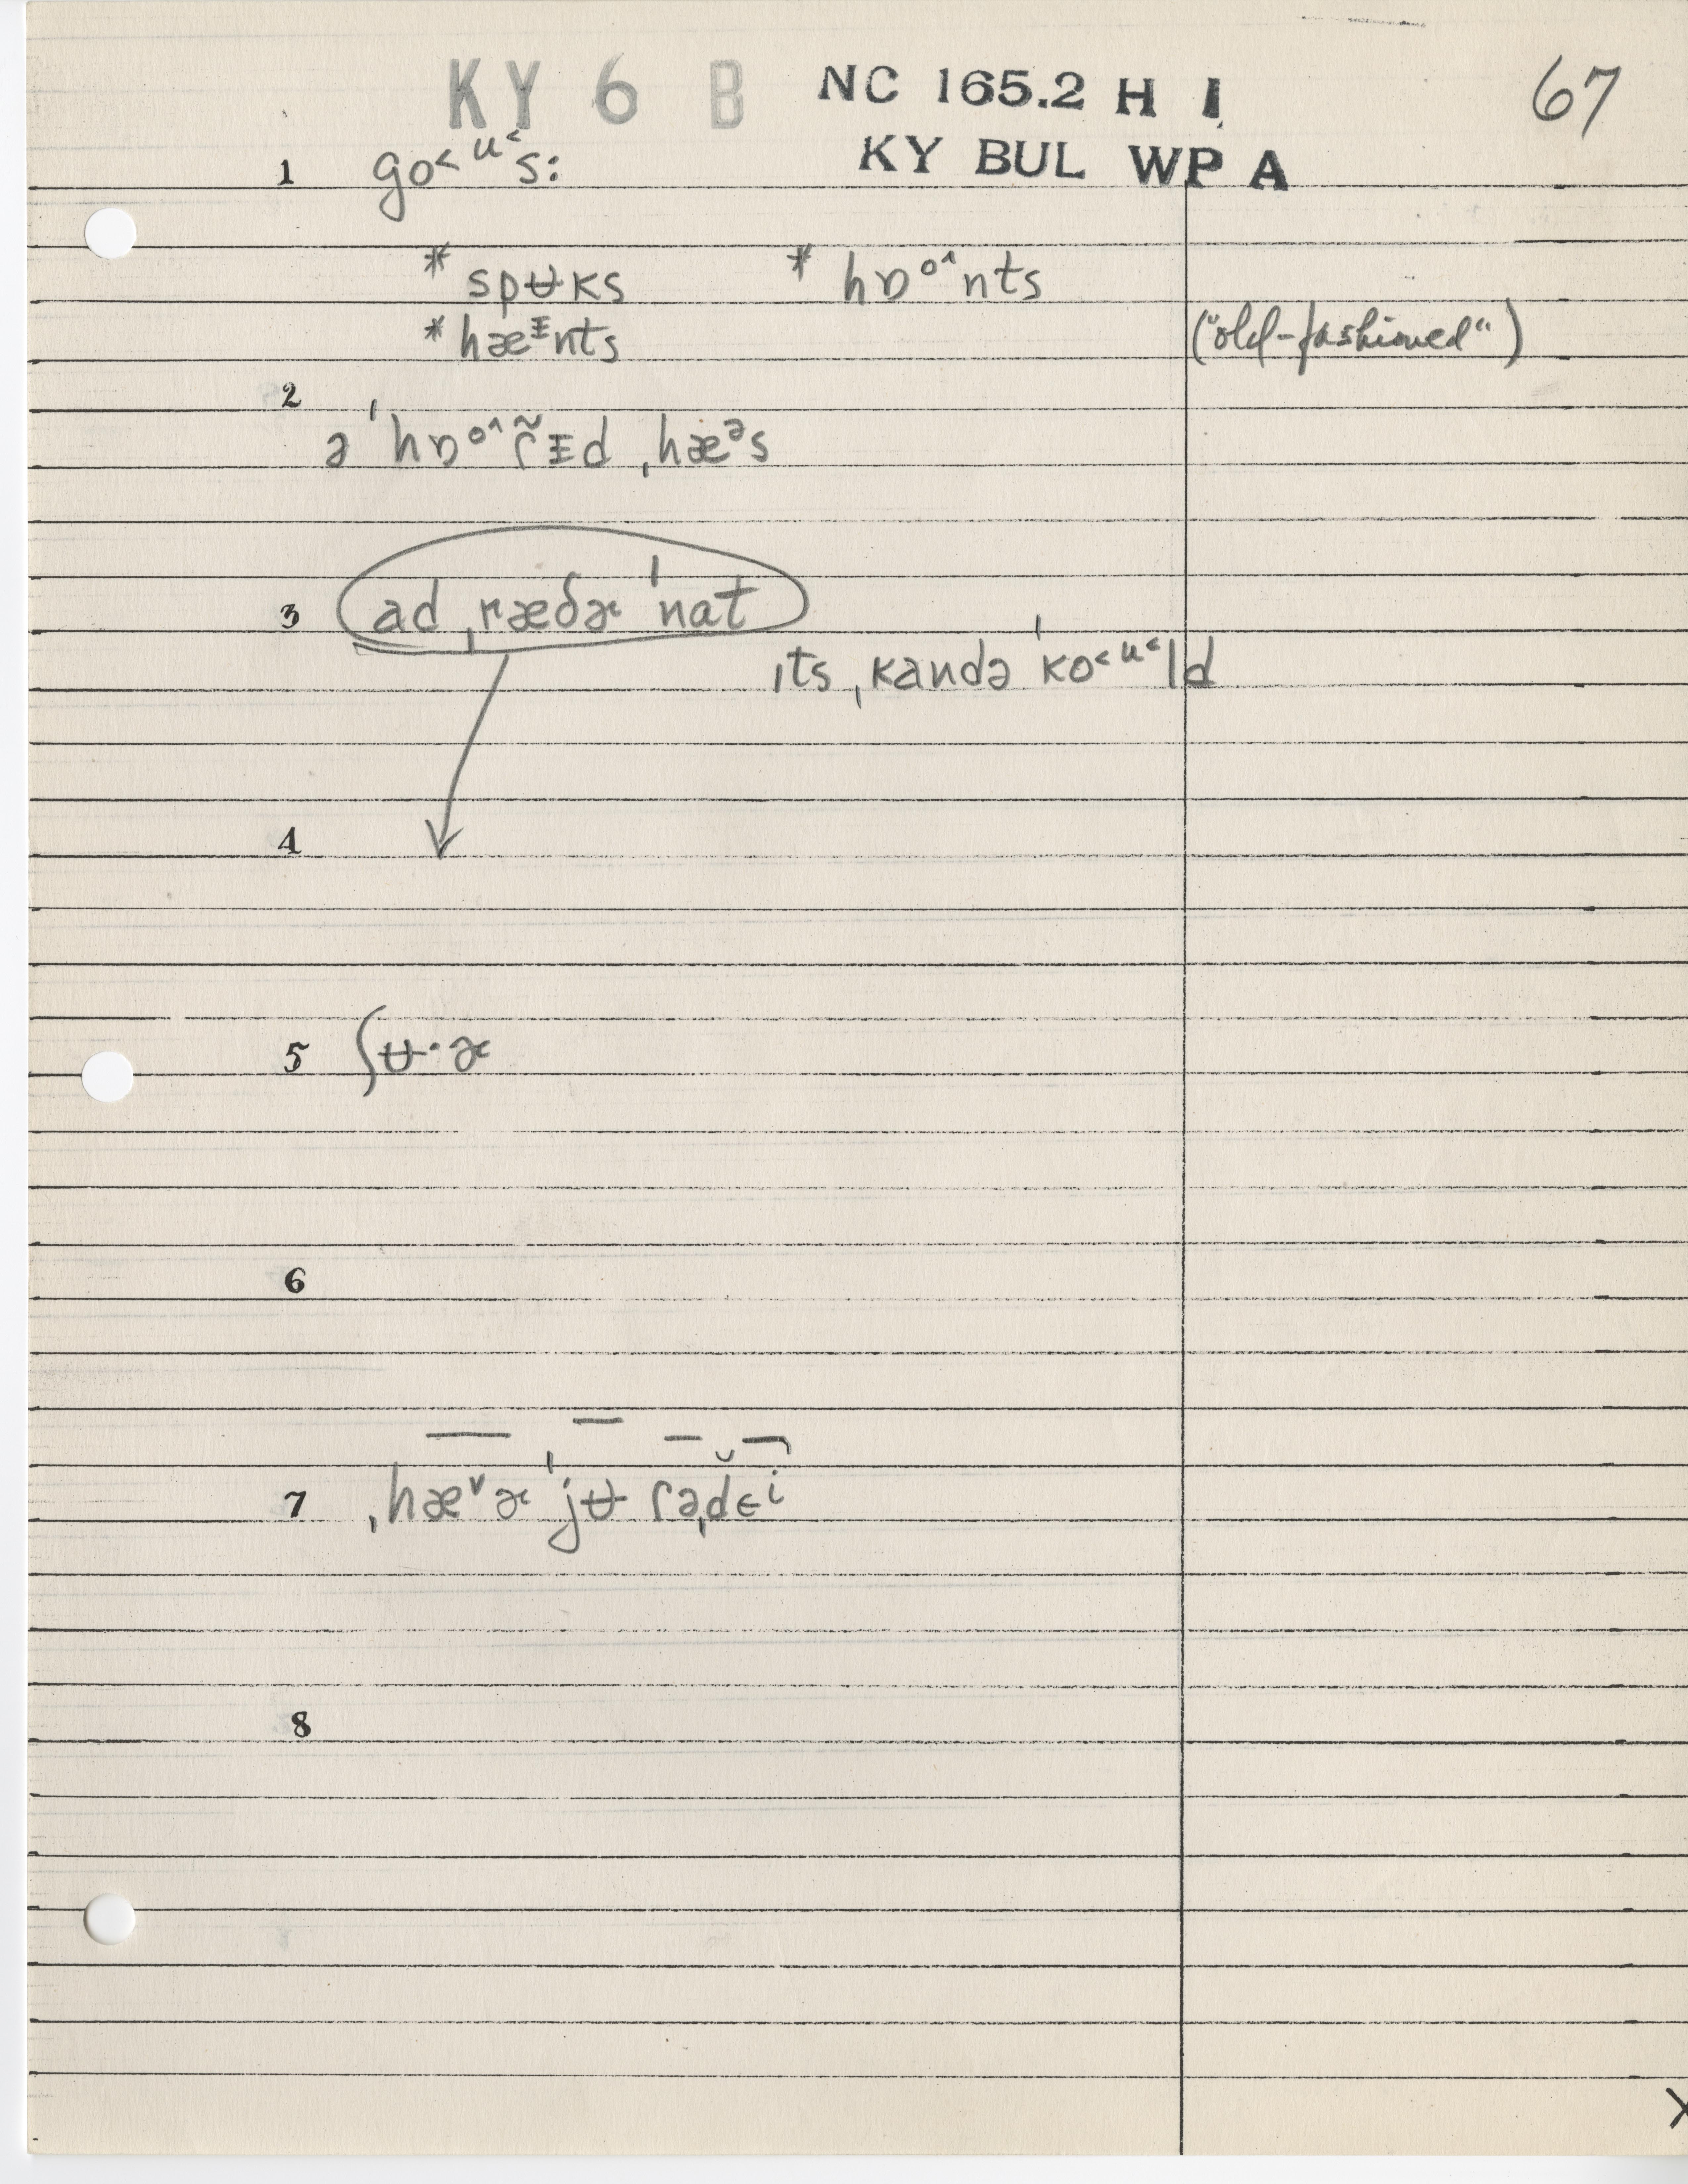 KY 6 B NC 165.2 H I 67
KY BUL WP A
1 go˂ᵘ˂s:
* spʉks * hɒᵒ^nts
* hæᵻnts ("old-fashioned")
2 ə ˈhɒᵒ^ɾ̃ᵻd ˌhæᵊs
3 ad ˌræðɚ ˈnat
ɪts ˌkandə ˈko˂ᵘ˂ld
4
5 ʃʉ·ɚ
6
7 ˌhæ˅ɚ ˈjʉ ɾəˌdɛⁱ
8
X